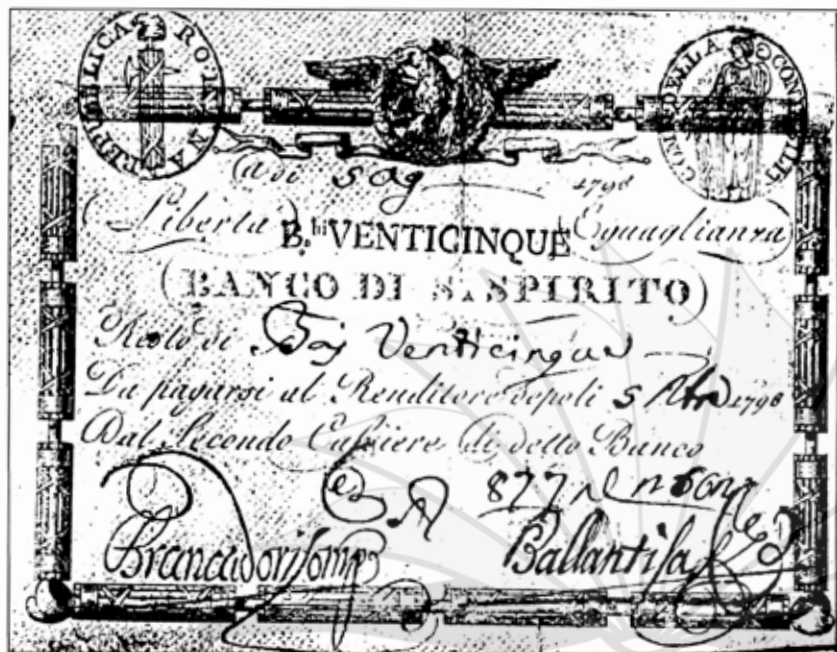 REPUBLICA ROMANA
CON DELLA CON
A di 5 ag 1798
(Liberta) (Eguaglianza)
B.hi VENTICINQUE
(BANCO DI S. SPIRITO)
Resto di Baj Venticinque
Da pagarsi al Renditore depoli 5 1798
Dal Secondo Cassiere di detto Banco
877
Brancadori
Ballanti